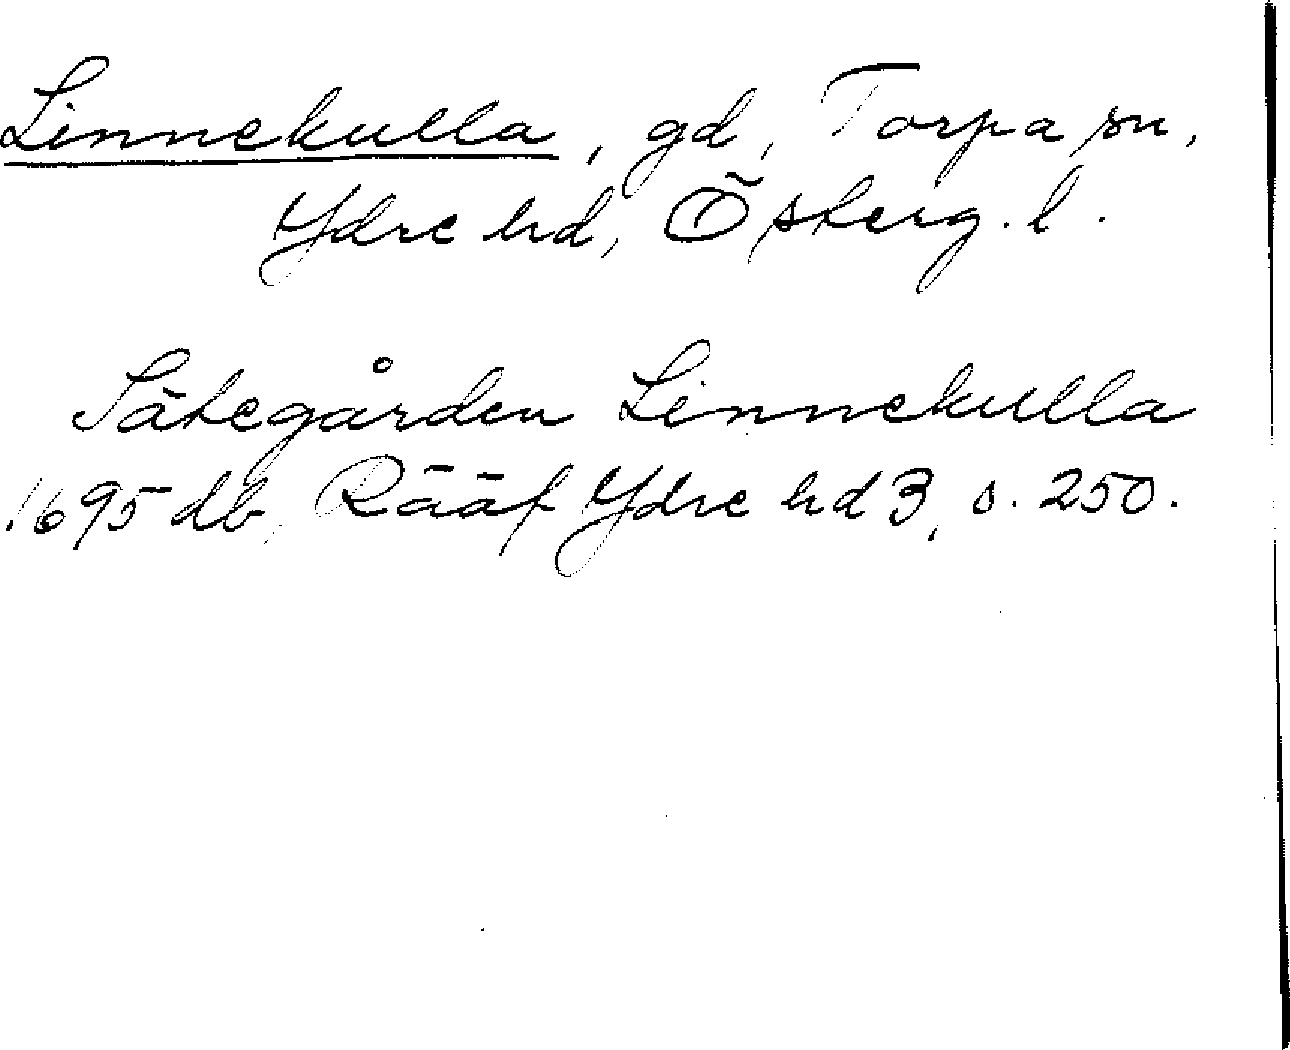 Linnekulla, gd, Torpa sn,
Ydre hd, Österg. l.
Sätegården Linnekulla
1695 db, Rääf Ydre hd 3, s. 250.